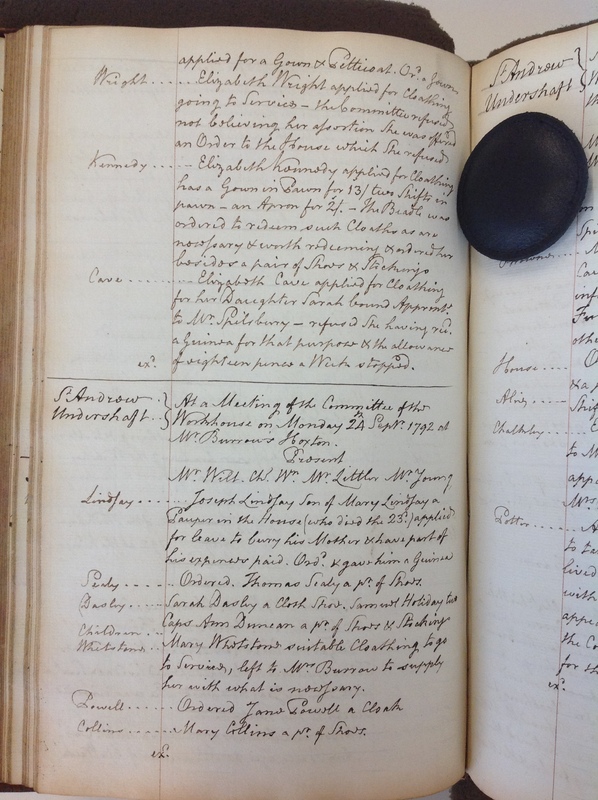 applied for a Gown & Petticoat. Ord. a Gown
Wright ..... Elizabeth Wright applied for Cloathing
going to Service – the Committee refused
not believing her assertion She was offered
an Order to the House which She refused
Kennedy ..... Elizabeth Kennedy applied for Cloathing
has a Gown in Pawn for 13/ two Shifts in
pawn – an Apron for 2/. – The Beadle was
ordered to redeem such Cloaths as are
necessary & worth redeeming & ordered her
besides a pair of Shoes & Stockings
Cave ....... Elizabeth Cave applied for Cloathing
for her Daughter Sarah bound Apprent.
to Mr. Spilsbury – refused She having rec.
a Guinea for that purpose & the allowance
of eighteen pence a Week stopped.
ex.
St. Andrew Undershaft } At a Meeting of the Committee of the
Workhouse on Monday 24 Sepr. 1792 at
Mr. Burrows Hoxton.
Present
Mr. Witt. Ch. Wn. Mr. Littler Mr. Young
Lindsay ...... Joseph Lindsay Son of Mary Lindsay a
Pauper in the House (who died the 23.) applied
for leave to bury his Mother & have part of
his expences paid. Ord. & gave him a Guinea
Sealy ...... Ordered. Thomas Sealy a pr. of Shoes.
Dasley ..... Sarah Dasley a Cloth Shoe. Samuel Holiday two
Children ... Caps Ann Duncan a pr. of Shoes & Stockings
Whetstone ... Mary Whetstone suitable Cloathing to go
to Service, left to Mrs. Burrow to supply
her with what is necessary.
Powell ..... Ordered Jane Powell a Cloak
Collins ...... Mary Collins a pr. of Shoes.
ex.
St. Andrew
Undershaft }
House ....
Chalkley ...
Potter ....
to
lived
with
the Co
for th
ex.